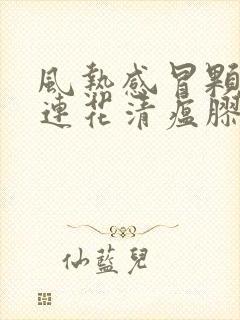 風熱感冒顆
連花清瘟膠
仙藍兒